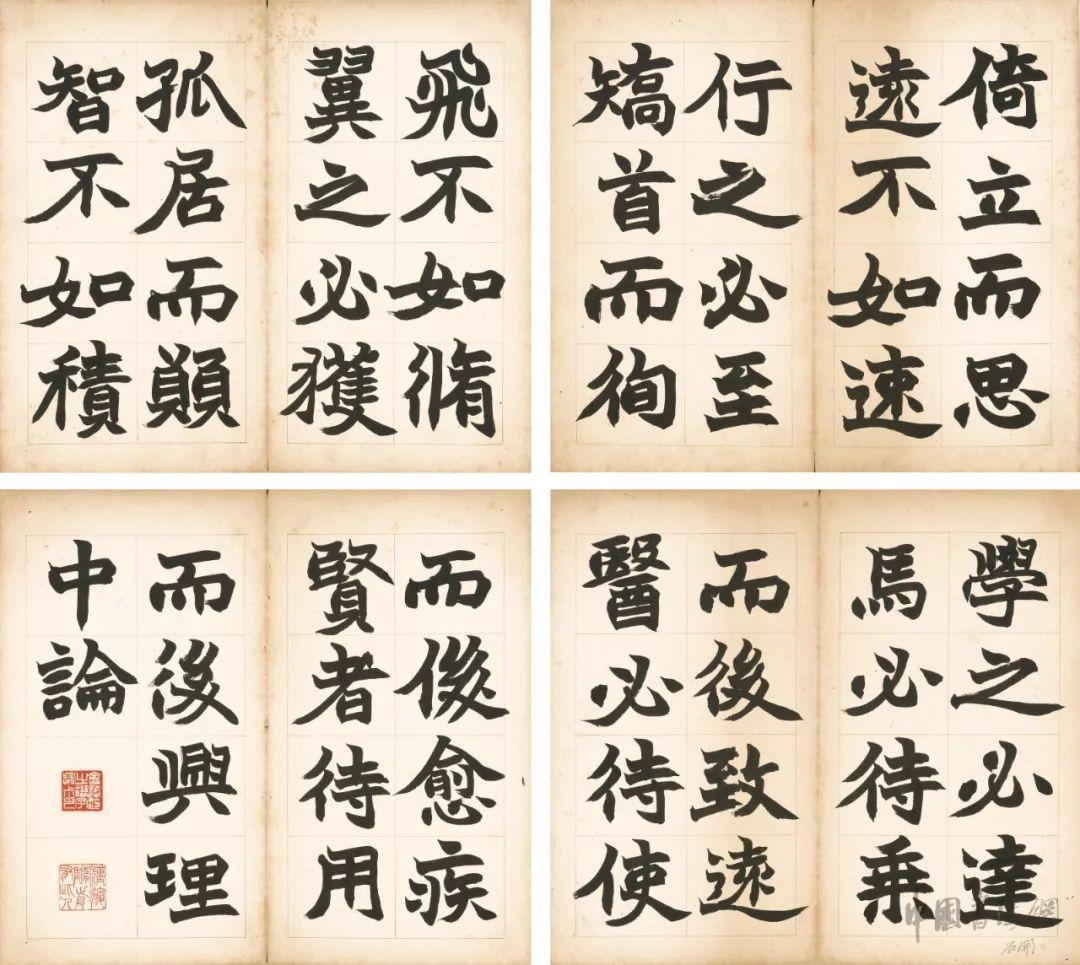 倚立而思
遠不如速
行之必至
矯首而徇
飛不如脩
翼之必獲
孤居而願
智不如積
學之必達
馬必待乘
而後致遠
醫必待使
而後愈疾
賢者待用
而後興理
中論
中國書法網